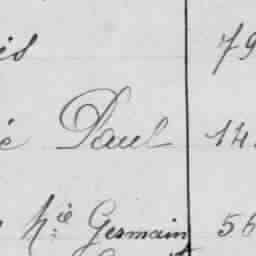 is 79
é Paul 14
hié Germain 56